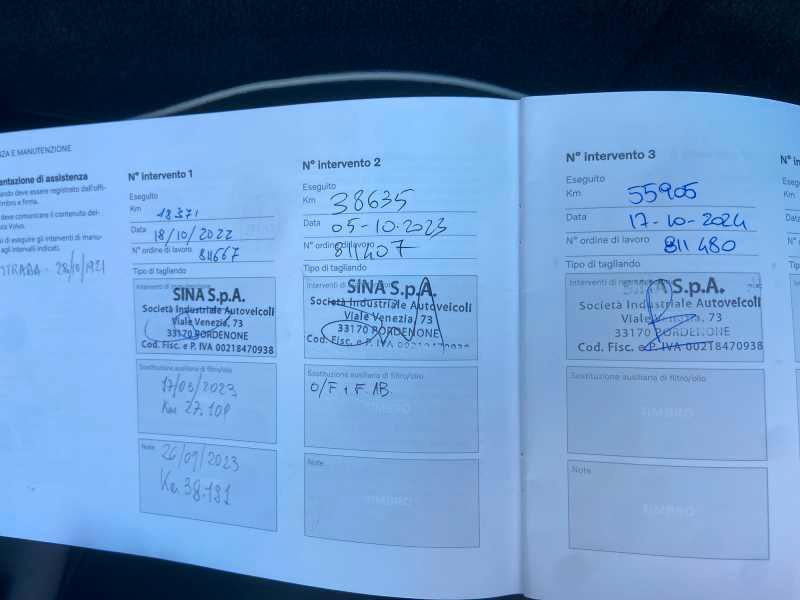 ZA E MANUTENZIONE
entazione di assistenza
ando deve essere registrato dall'offi-
imbro e firma.
deve comunicare il contenuto del-
ura Volvo.
di eseguire gli interventi di manu-
agli intervalli indicati.
STRADA - 28/10/1921
N° intervento 1
Eseguito
Km 18371
Data 18/10/2022
N° ordine di lavoro 811667
Tipo di tagliando
SINA S.p.A.
Società Industriale Autoveicoli
Viale Venezia, 73
33170 PORDENONE
Cod. Fisc. e P. IVA 00218470938
Sostituzione ausiliaria di filtro/olio
17/03/2023
Km 27.109
Note
26/09/2023
Km 38.181
N° intervento 2
Eseguito
Km 38635
Data 05-10-2023
N° ordine di lavoro 811407
Tipo di tagliando
Interventi di
SINA S.p.A.
Società Industriale Autoveicoli
Viale Venezia, 73
33170 PORDENONE
Cod. Fisc. e P. IVA
Sostituzione ausiliaria di filtro/olio
O/F + F. AB.
TIMBRO
Note
TIMBRO
N° intervento 3
Eseguito
Km 55905
Data 17-10-2024
N° ordine di lavoro 811480
Tipo di tagliando
Interventi di
SINA S.p.A.
Società Industriale Autoveicoli
Viale Venezia, 73
33170 PORDENONE
Cod. Fisc. e P. IVA 00218470938
Sostituzione ausiliaria di filtro/olio
TIMBRO
Note
TIMBRO
N° in
Esegu
Km
Data
N° or
Tipo
Inter
Sos
No